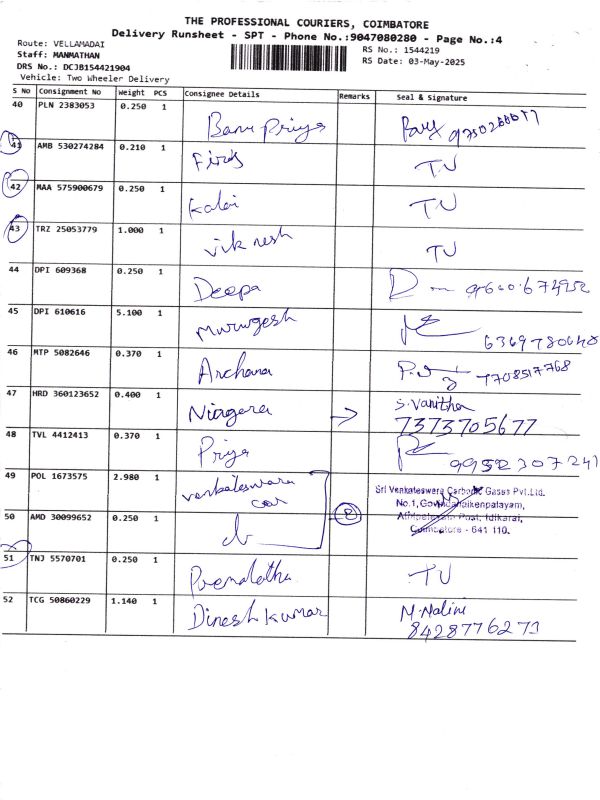 THE PROFESSIONAL COURIERS, COIMBATORE
Delivery Runsheet - SPT - Phone No.:9047080280 - Page No.:4
Route: VELLAMADAI
Staff: MANMATHAN
DRS No.: DCJB1544421904
Vehicle: Two Wheeler Delivery
RS No.: 1544219
RS Date: 03-May-2025
S No Consignment No Weight PCS Consignee Details Remarks Seal & Signature
40 PLN 2383053 0.250 1 Banu Priya
41 AMB 530274284 0.210 1 TU
42 MAA 575900679 0.250 1 Kalai TU
43 TRZ 25053779 1.000 1 Viknesh TU
44 DPI 609368 0.250 1 Deepa
45 DPI 610616 5.100 1 Murugesh 6369780648
46 MTP 5082646 0.370 1 Archana 7708517768
47 HRD 360123652 0.400 1 Niagara → S. Vanitha
7373705677
48 TVL 4412413 0.370 1 Priya 9952307241
49 POL 1673575 2.980 1 Venkateswara
Car
Sri Venkateswara Carbonic Gases Pvt.Ltd.
No.1, Govindanaikenpalayam,
Post, Idikarai,
Coimbatore - 641 110.
50 AMD 30099652 0.250 1
51 TNJ 5570701 0.250 1 Premalatha TU
52 TCG 50860229 1.140 1 Dinesh Kumar M. Malini
8428776273